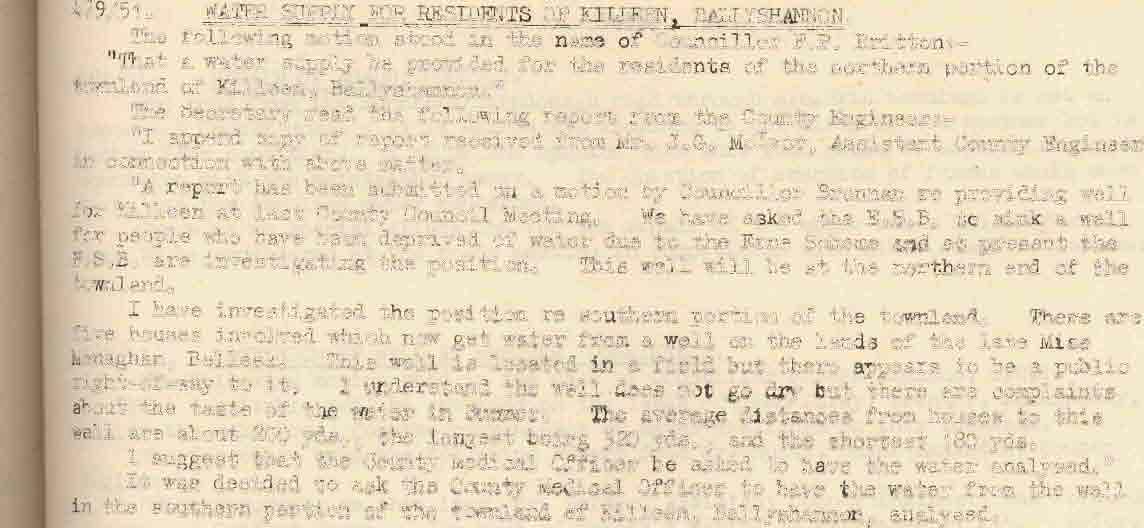 479/51. WATER SUPPLY FOR RESIDENTS OF KILLEEN, BALLYSHANNON.
The following motion stood in the name of Councillor F.P. Britton:-
"That a water supply be provided for the residents of the northern portion of the
townland of Killeen, Ballyshannon."
The Secretary read the following report from the County Engineer:-
"I append copy of report received from Mr. J.G. McIvor, Assistant County Engineer
in connection with above matter.
"A report has been submitted on a motion by Councillor Brennan re providing well
for Killeen at last County Council Meeting. We have asked the E.S.B. to sink a well
for people who have been deprived of water due to the Erne Scheme and at present the
E.S.B. are investigating the position. This well will be at the northern end of the
townland.
I have investigated the position re southern portion of the townland. There are
five houses involved which now get water from a well on the lands of the late Miss
Monaghan, Belleek. This well is located in a field but there appears to be a public
right-of-way to it. I understand the well does not go dry but there are complaints
about the taste of the water in Summer. The average distances from houses to this
well are about 200 yds., the longest being 320 yds., and the shortest 180 yds.
I suggest that the County Medical Officer be asked to have the water analysed."
It was decided to ask the County Medical Officer to have the water from the well
in the southern portion of the townland of Killeen, Ballyshannon, analysed.